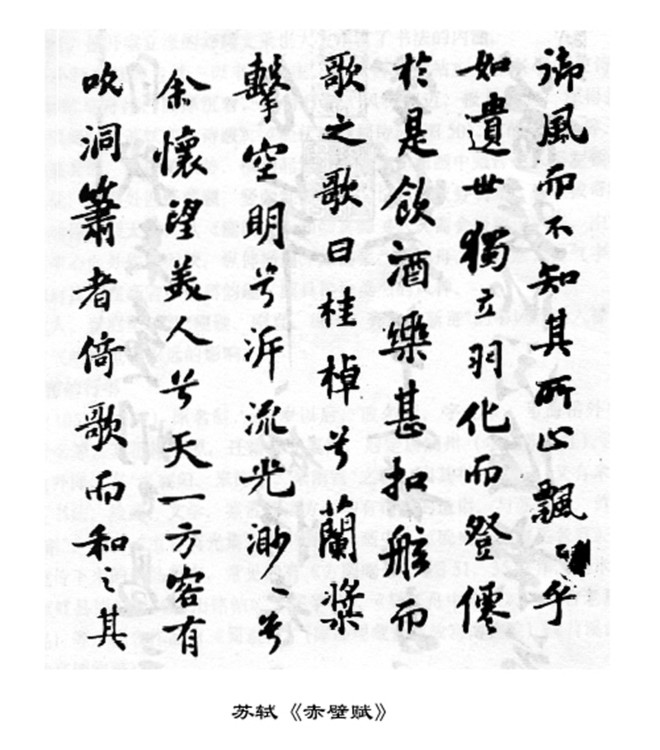 御風而不知其所止飄飄乎
如遺世獨立羽化而登僊
於是飲酒樂甚扣舷而
歌之歌曰桂棹兮蘭槳
擊空明兮泝流光渺〻兮
余懷望美人兮天一方客有
吹洞簫者倚歌而和之其
苏轼《赤壁赋》